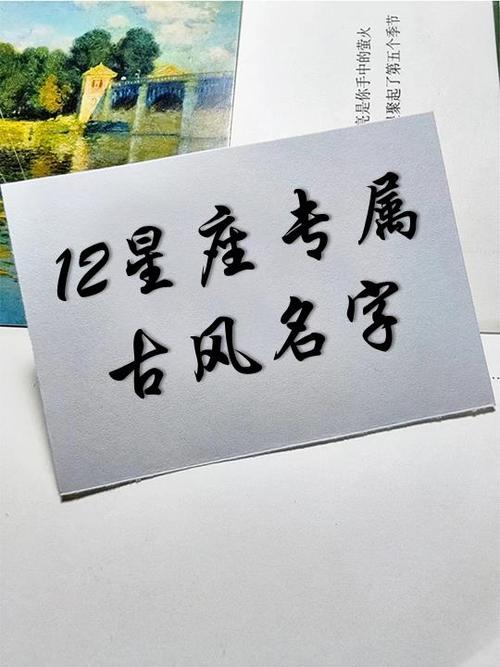 12星座专属
古风名字
亮是你手中的萤火
聚起了第五个季节